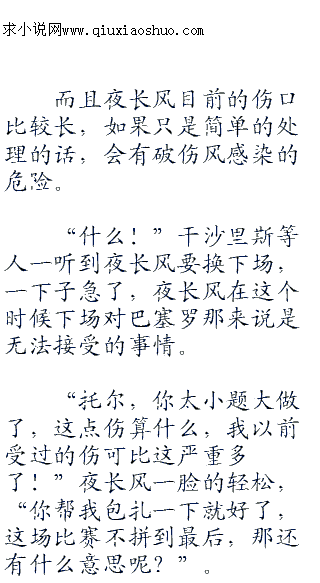 求小说网www.qiuxiaoshuo.com
而且夜长风目前的伤口
比较长，如果只是简单的处
理的话，会有破伤风感染的
危险。
“什么！”干沙里斯等
人一听到夜长风要换下场，
一下子急了，夜长风在这个
时候下场对巴塞罗那来说是
无法接受的事情。
“托尔，你太小题大做
了，这点伤算什么，我以前
受过的伤可比这严重多
了！”夜长风一脸的轻松，
“你帮我包扎一下就好了，
这场比赛不拼到最后，那还
有什么意思呢？”。